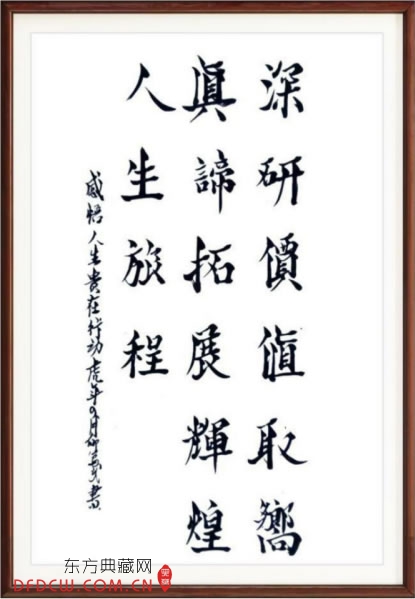 深研價値取嚮
眞諦拓展輝煌
人生旅程
感悟人生貴在行动虎年月書
东方典藏网
DFDCW.COM.CN